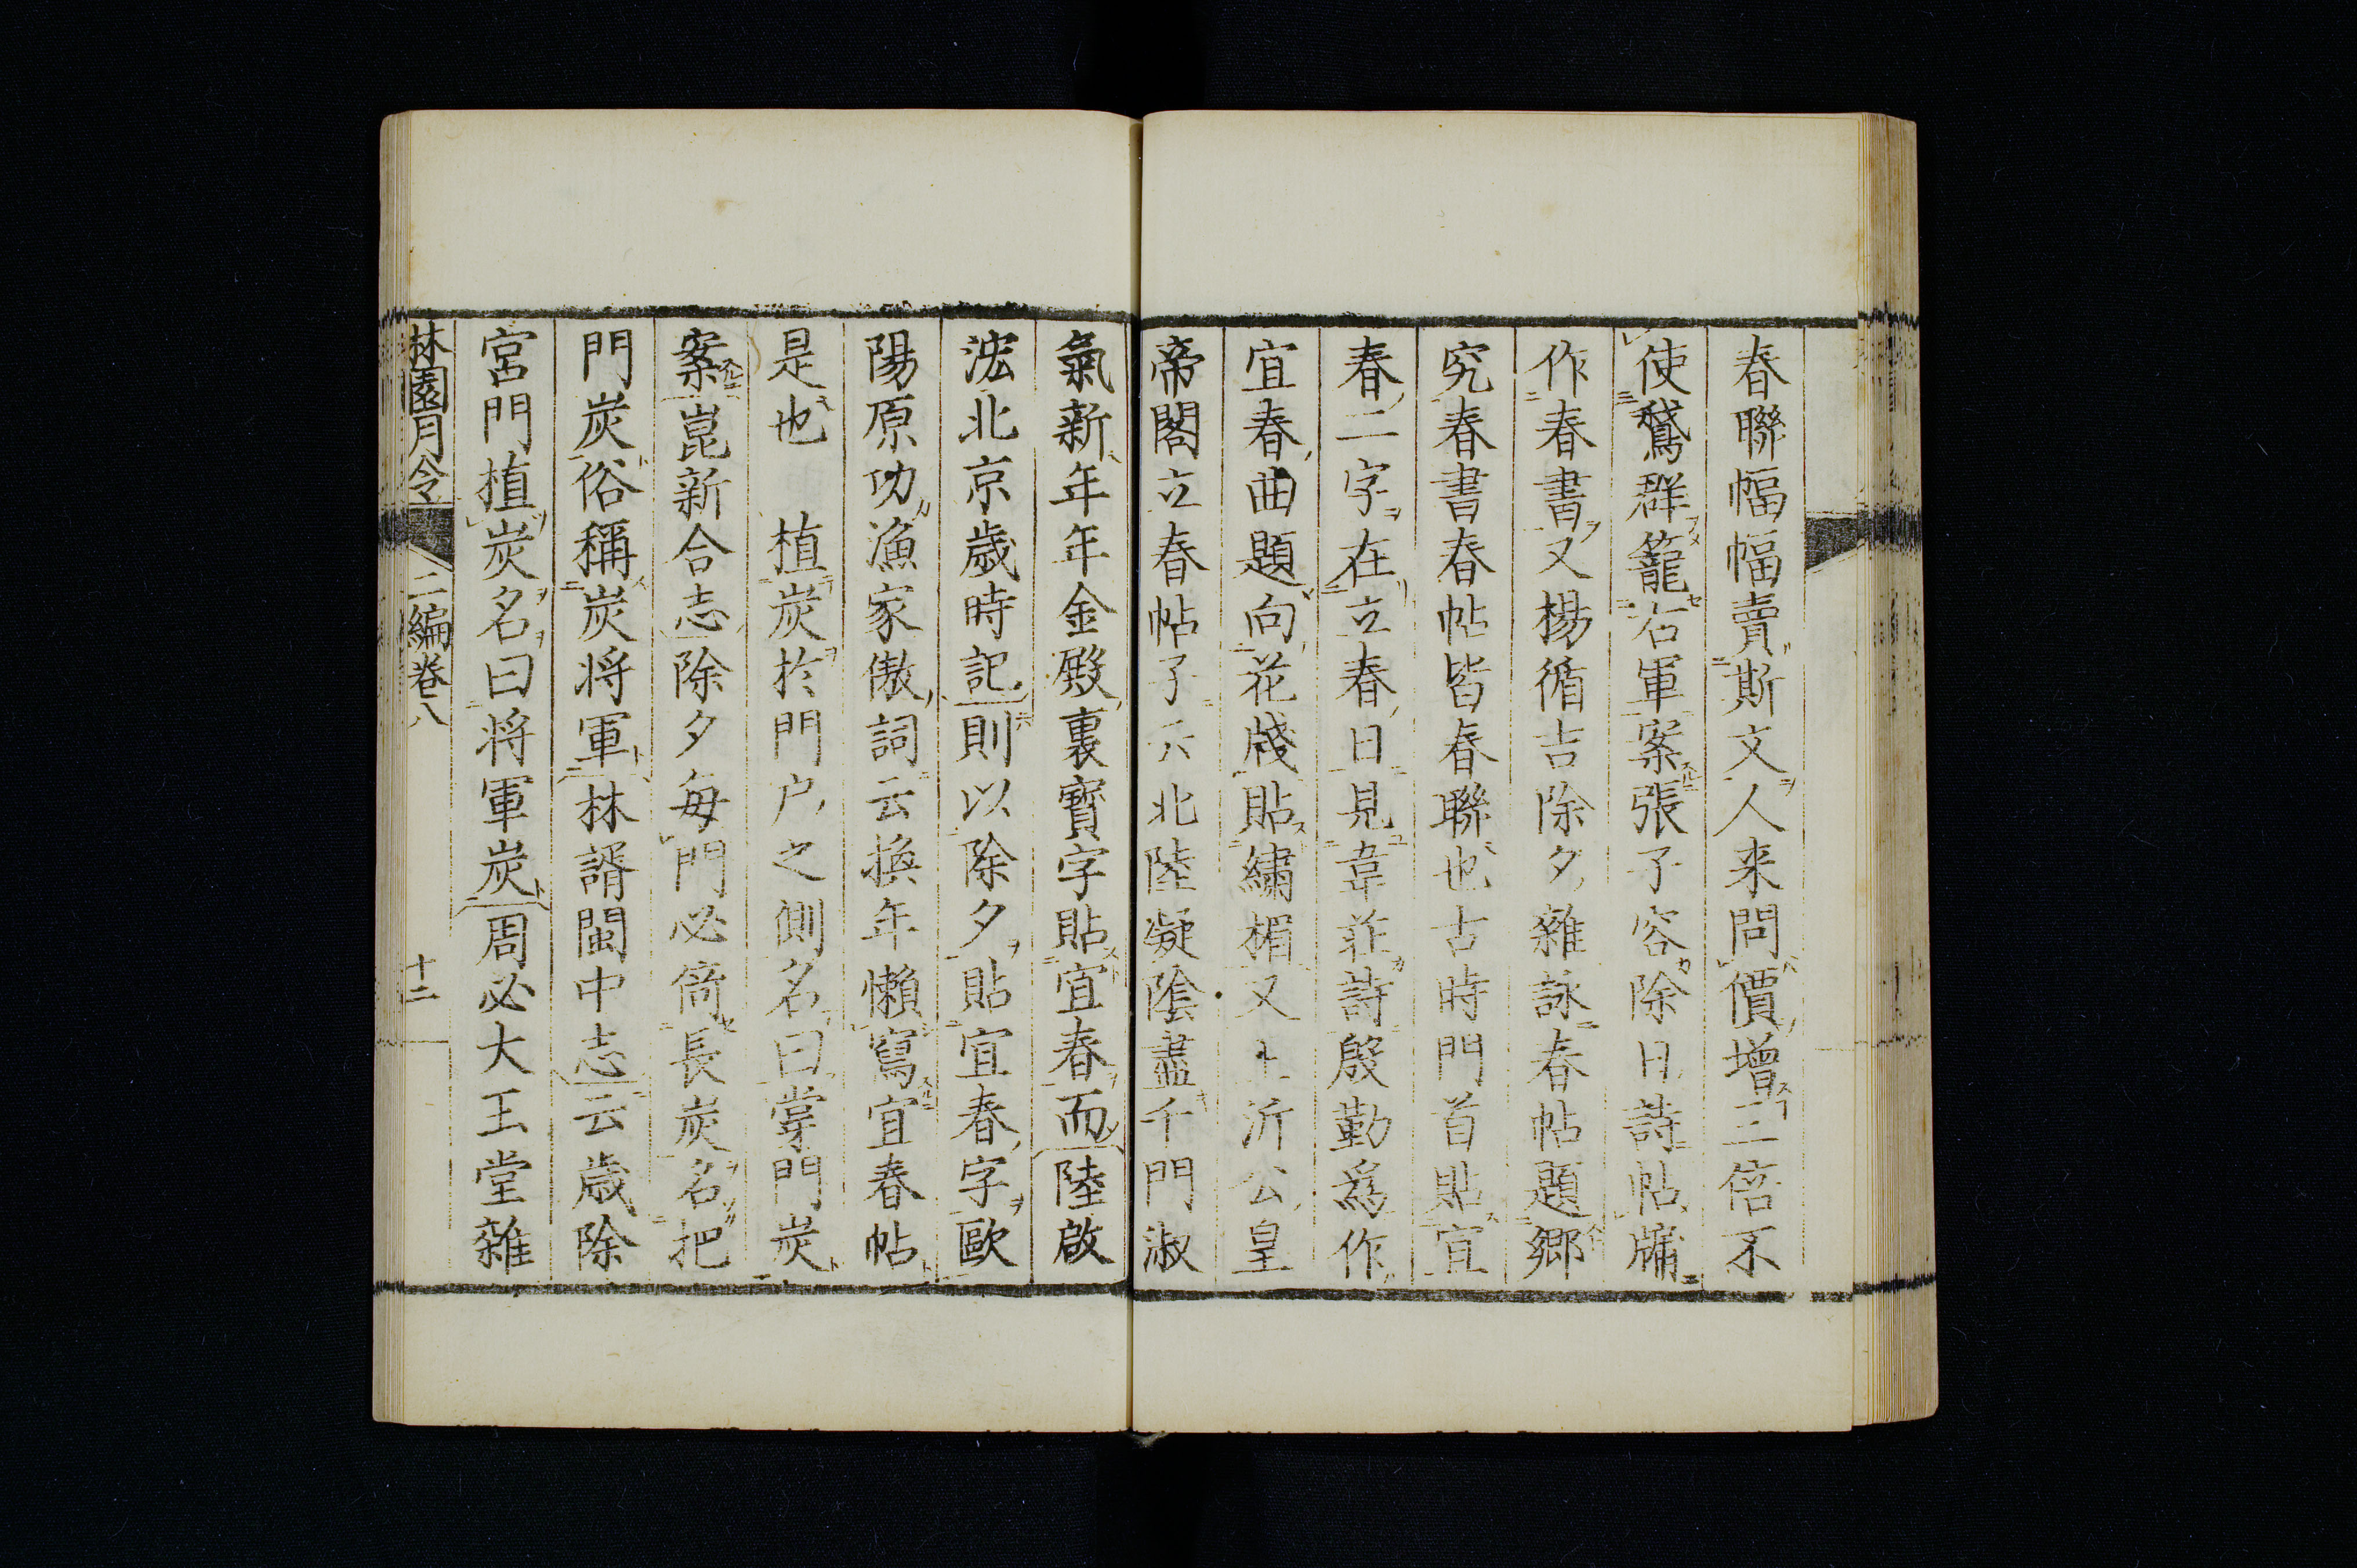 春聯幅幅賣斯文人来問價增三倍不
使鵞群籠右軍案張子容除日詩帖牗
作春書又楊循吉除夕雜詠春帖題鄉
究春書春帖皆春聯也古時門首貼宜
春二字在立春日見韋莊詩殷勤爲作
宜春曲題向花牋貼繡楣又王沂公皇
帝閣立春帖子云北陸凝陰盡千門淑
氣新年年金殿裏寳字貼宜春而陸啟
浤北京歲時記則以除夕貼宜春字歐
陽原功漁家傲詞云換年懶寫宜春帖
是也 植炭於門户之側名曰掌門炭
案崑新合志除夕每門必倚長炭名把
門炭俗稱炭将軍林諝閩中志云歳除
宮門植炭名曰将軍炭周必大玉堂雜
林園月令 二編卷八 十二